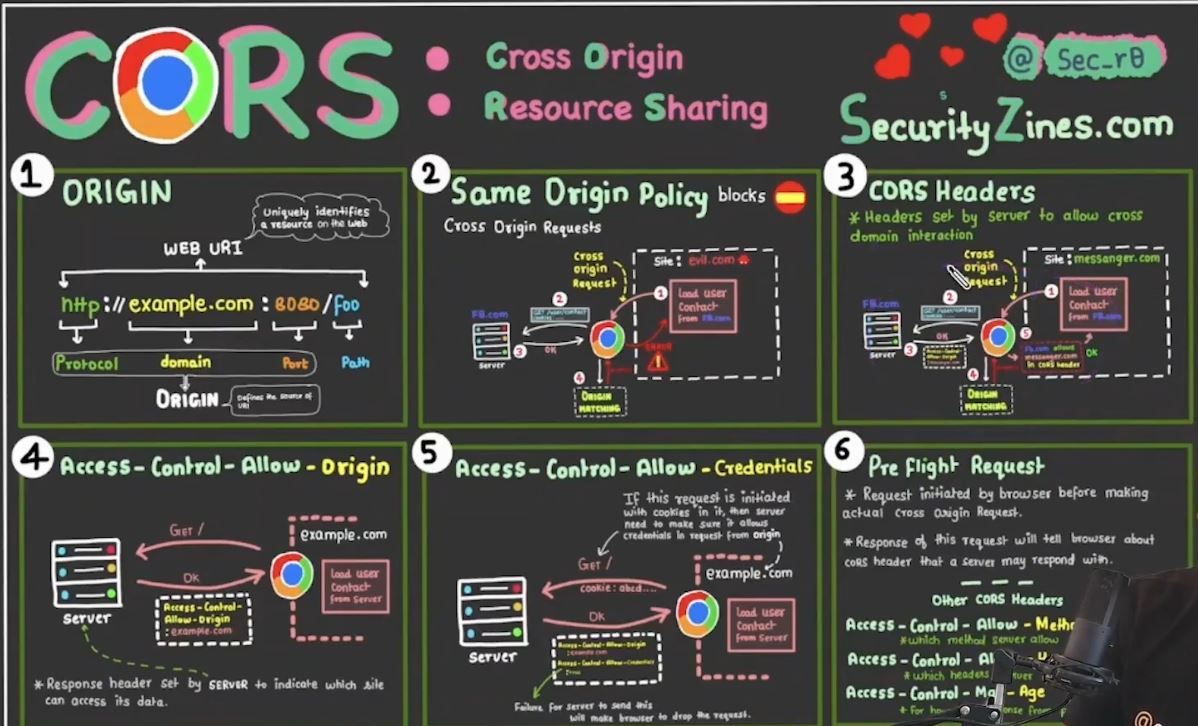 CORS
Cross Origin
Resource Sharing
@ Sec_r0
SecurityZines.com
1
ORIGIN
Uniquely identifies
a resource on the web
WEB URI
http://example.com:8080/foo
Protocol domain Port Path
ORIGIN
Defines the source of
URI
2
Same Origin Policy blocks
Cross Origin Requests
Cross
origin
Request
Site: evil.com
1
Load user
Contact
from FB.com
2
GET /user/contact
FB.com
Server
3
OK
ERROR
4
ORIGIN
MATCHING
3
CORS Headers
* Headers set by server to allow cross
domain interaction
Cross
origin
Request
Site: messanger.com
1
Load user
Contact
from FB.com
2
GET /user/contact
FB.com
Server
3
OK
Access-Control-
Allow-Origin
5
FB.com allows
messanger.com
in CORS header
OK
4
ORIGIN
MATCHING
4
Access-Control-Allow-Origin
Get /
example.com
OK
Load user
Contact
from Server
Server
Access-Control-
Allow-Origin
: example.com
* Response header set by SERVER to indicate which site
can access its data.
5
Access-Control-Allow-Credentials
If this request is initiated
with cookies in it, then server
need to make sure it allows
credentials in request from origin
Get /
cookie: abcd....
example.com
OK
Load user
Contact
from Server
Server
Access-Control-Allow-Origin
: example.com
Access-Control-Allow-Credentials
: true
Failure for server to send this
will make browser to drop the request.
6
Pre flight Request
* Request initiated by browser before making
actual Cross Origin Request.
* Response of this request will tell browser about
CORS header that a server may respond with.
Other CORS Headers
Access-Control-Allow-Metho
* which method server allow
Access-Control-Al
* which headers
Access-Control-Ma -Age
* For ho
@